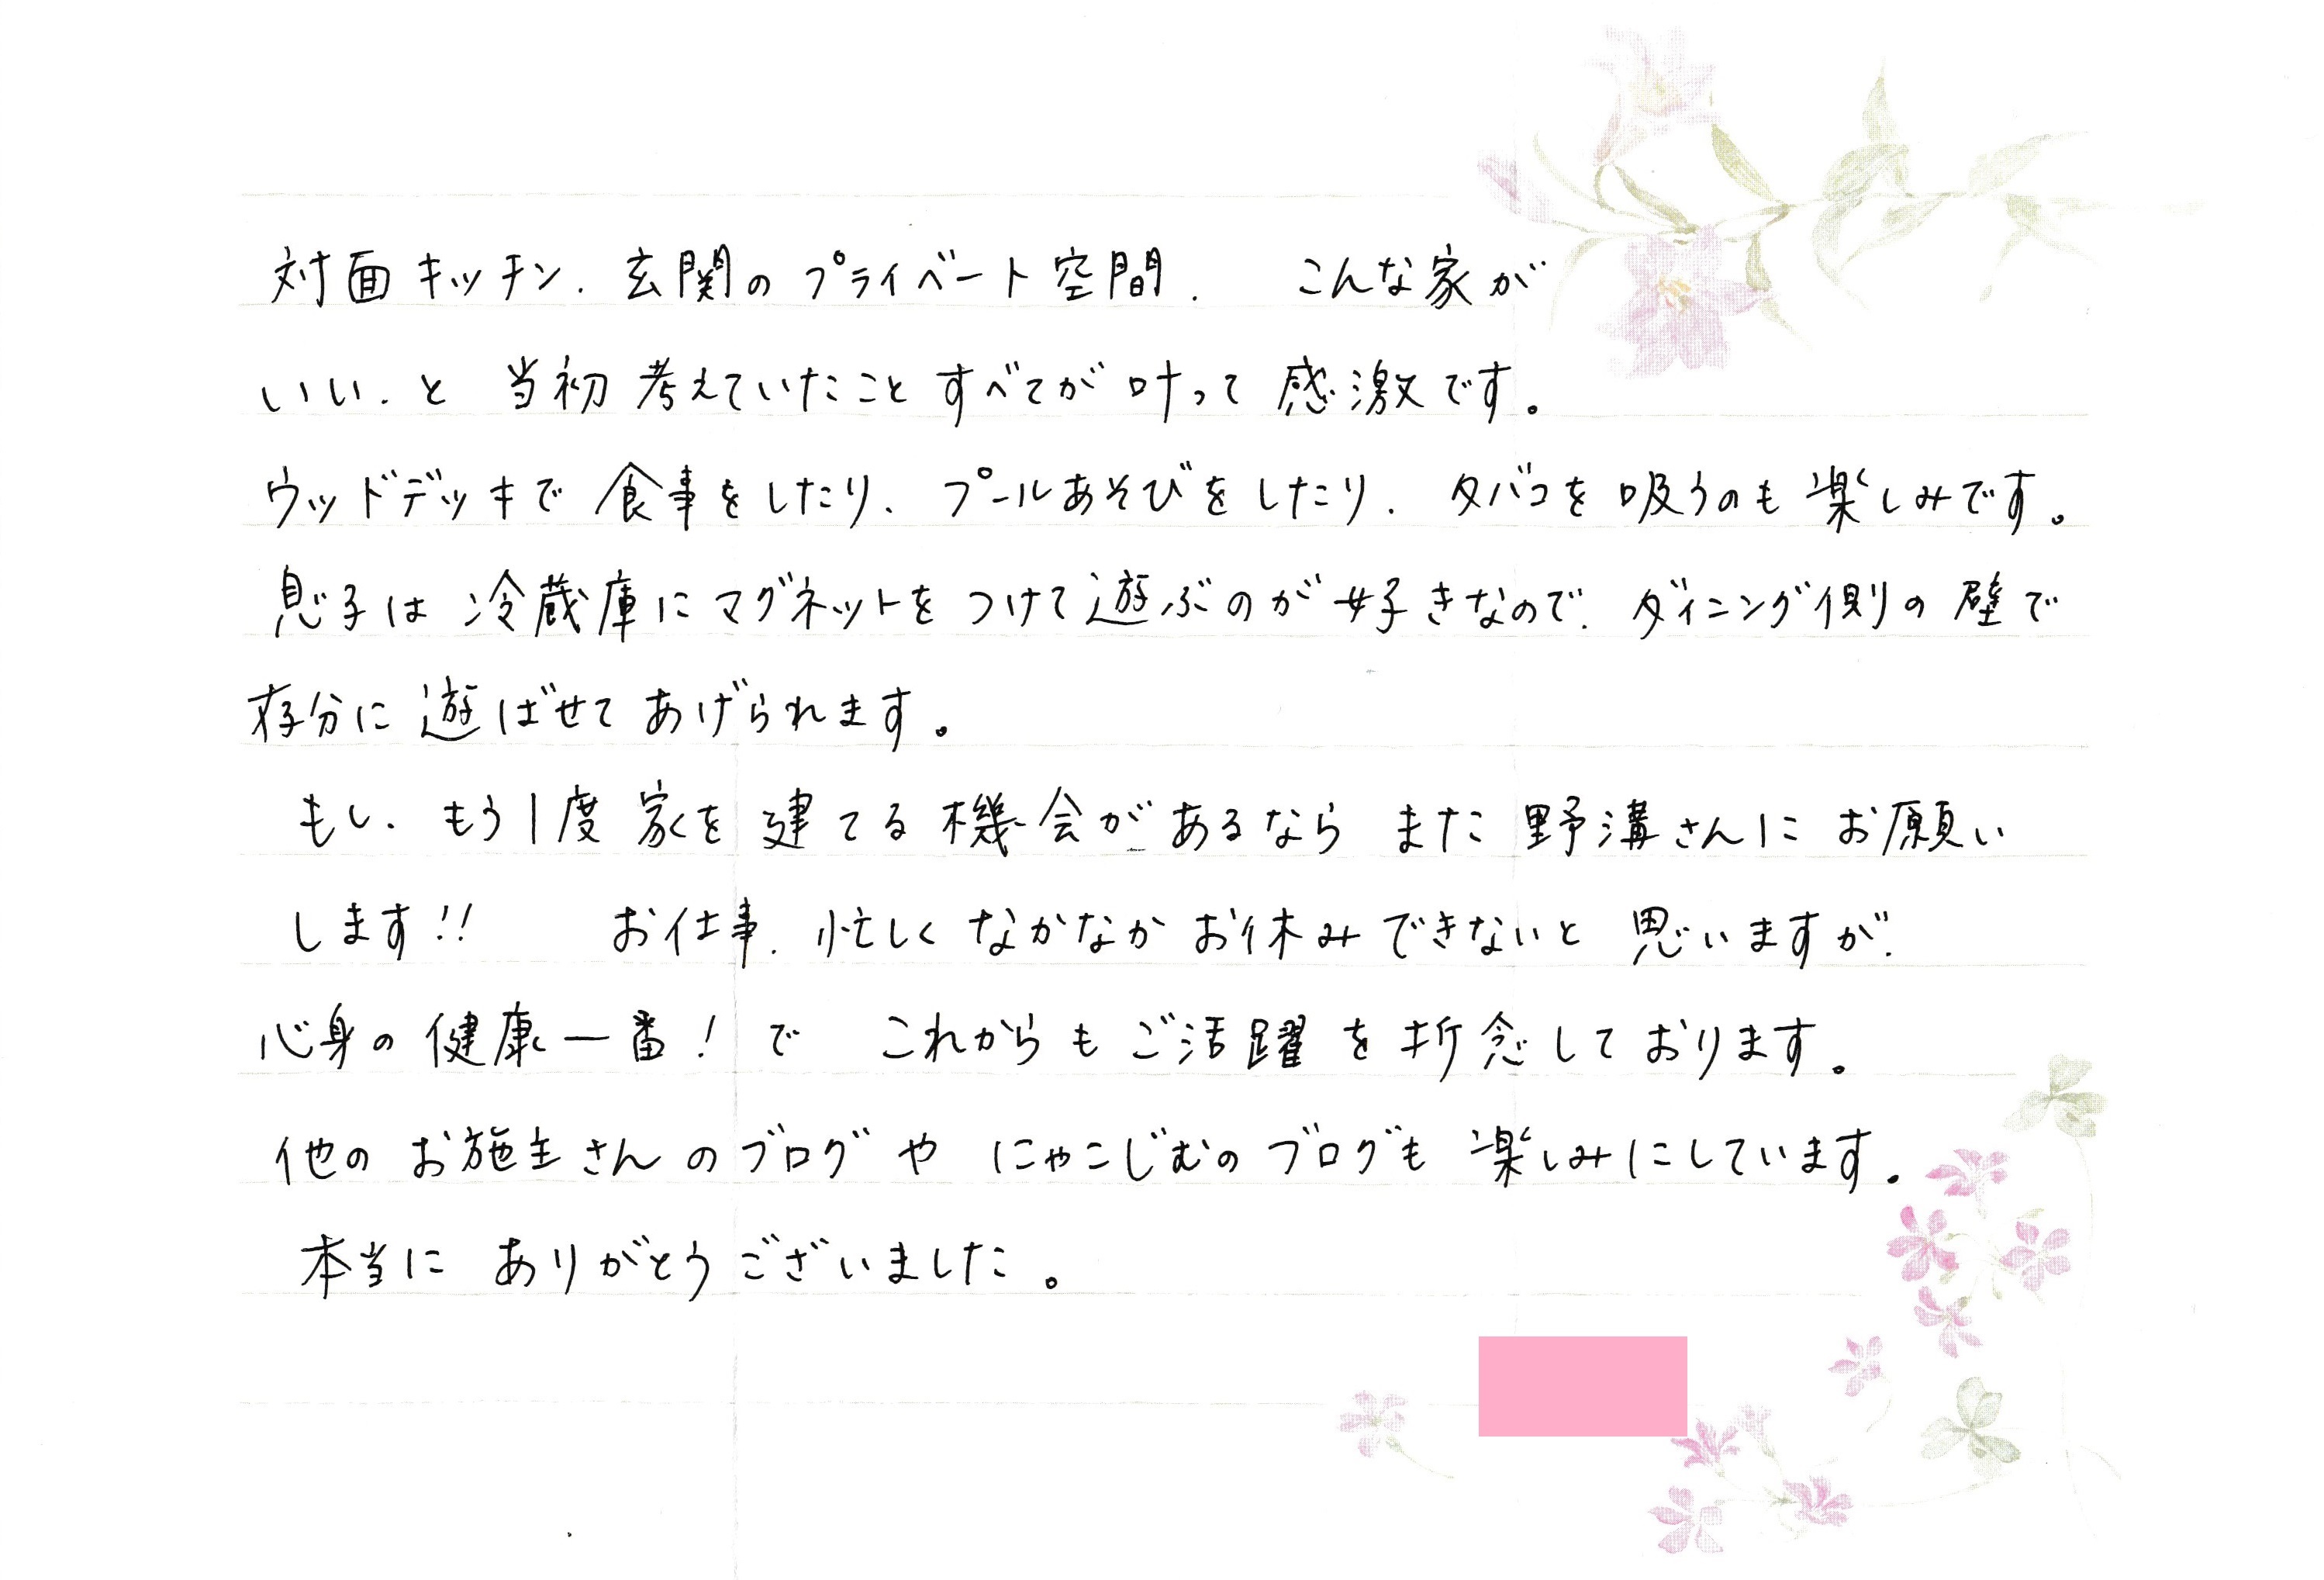 対面キッチン、玄関のプライベート空間、 こんな家が
いい、と 当初 考えていたこと すべてが 叶って 感激です。
ウッドデッキで 食事をしたり、プールあそびをしたり、タバコを 吸うのも 楽しみです。
息子は 冷蔵庫に マグネットを つけて 遊ぶのが 好きなので、ダイニング側の 壁で
存分に 遊ばせて あげられます。
もし、もう1度 家を 建てる 機会が あるなら また 野溝さんに お願い
します!! お仕事、忙しく なかなか お休み できないと 思いますが、
心身の 健康一番! で これからも ご活躍 を 祈念して おります。
他の お施主さんの ブログ や にゃこじむの ブログも 楽しみにしています。
本当に ありがとうございました。